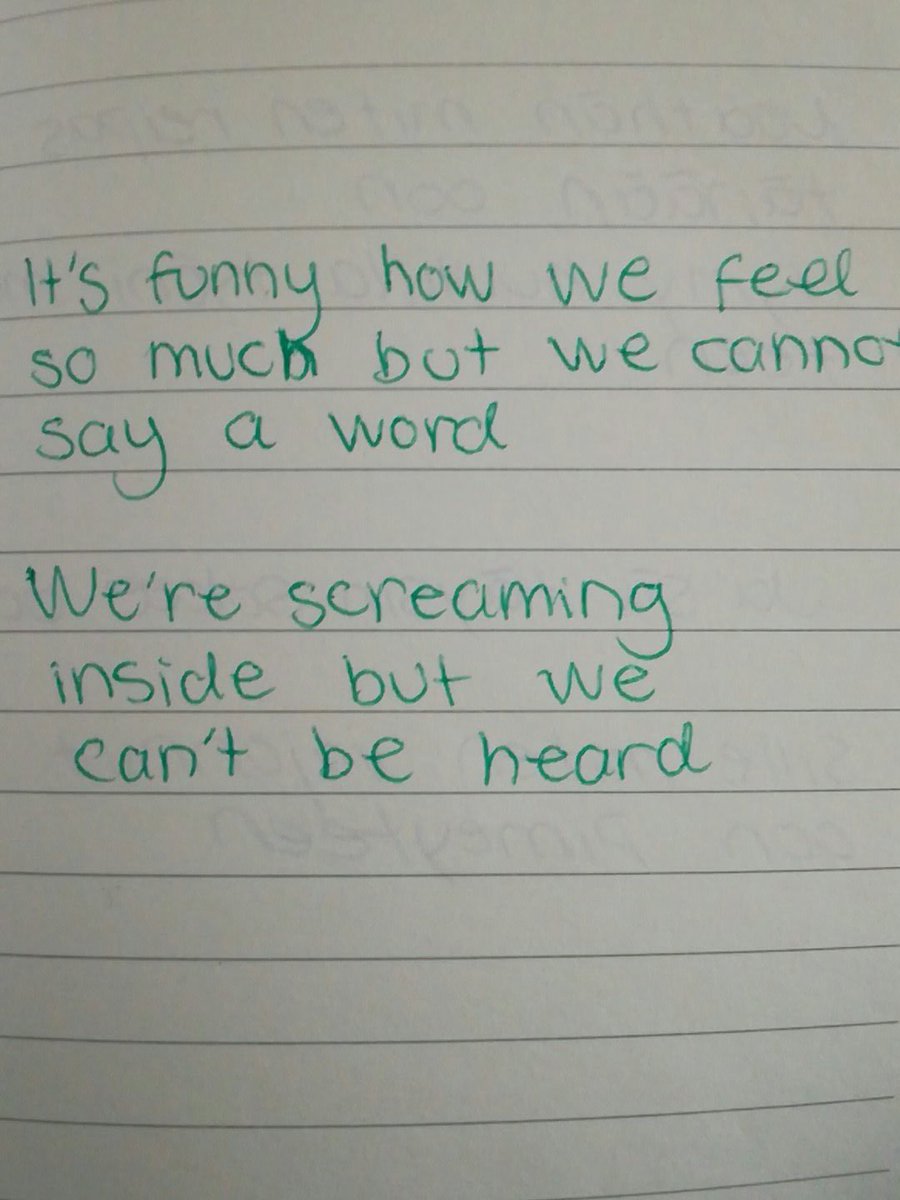 It's funny how we feel
so much but we cannot
say a word
We're screaming
inside but we
can't be heard